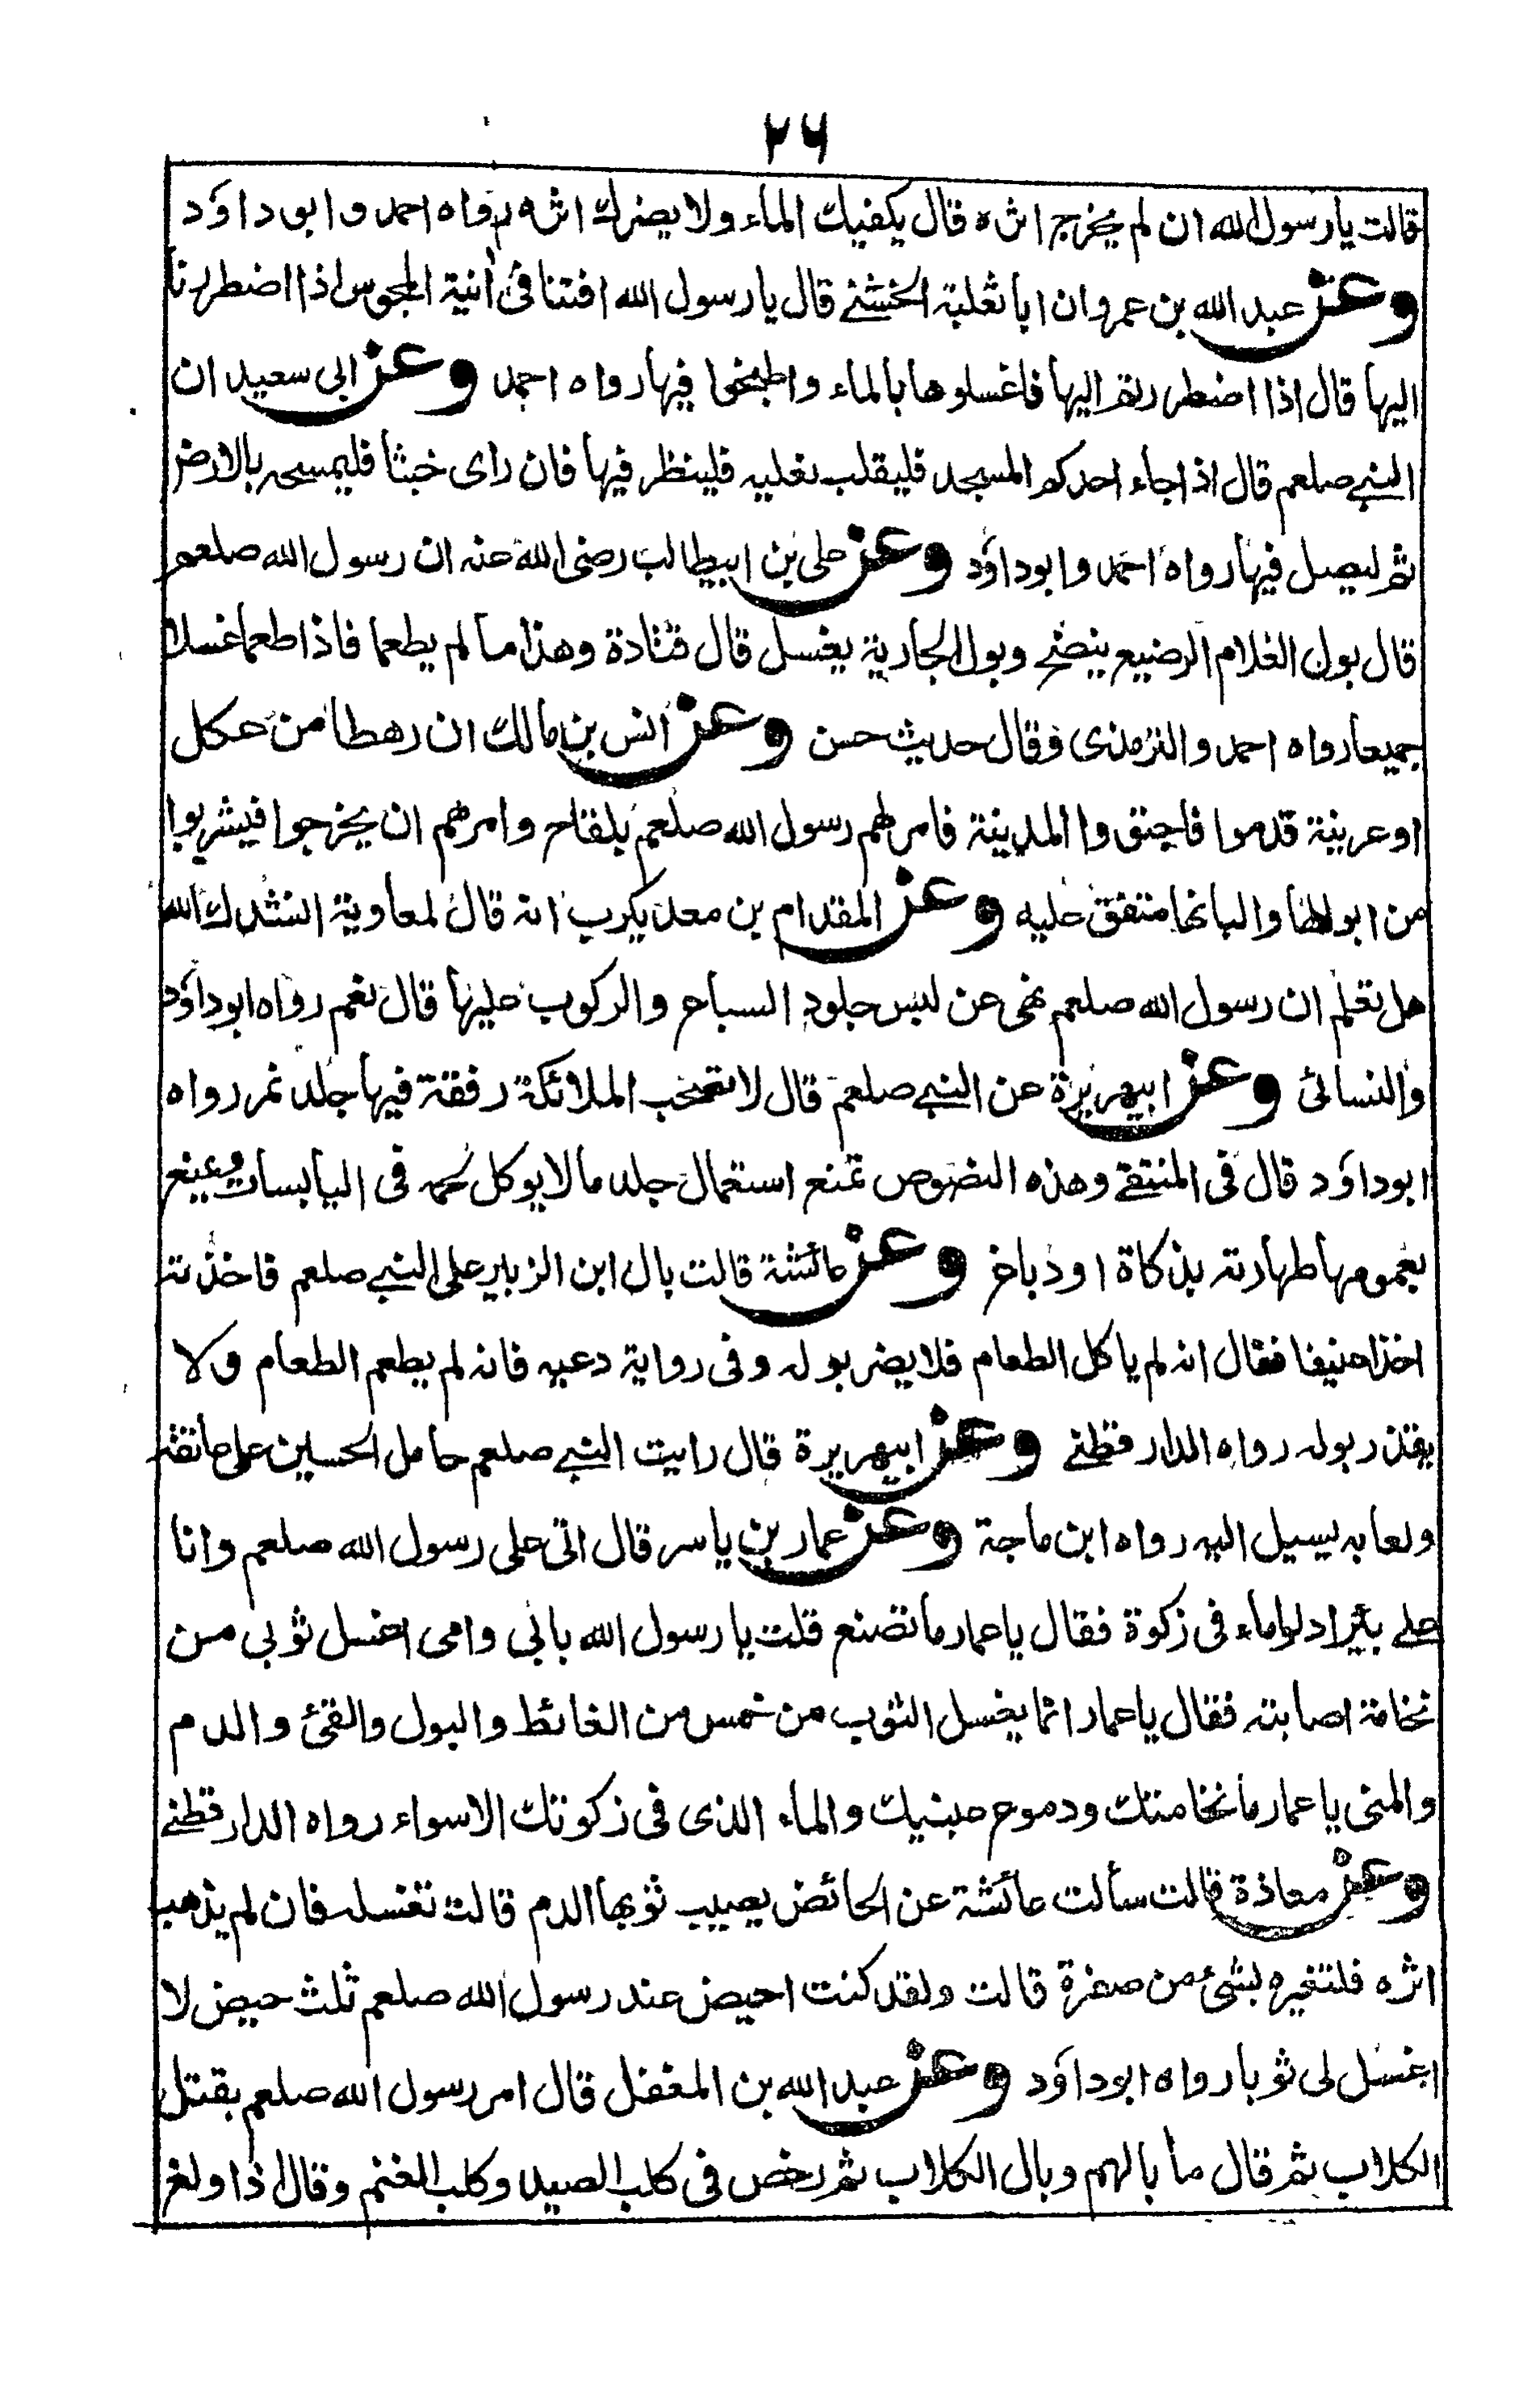 ۲۶
قالت يا رسول الله ان لم يخرج اثره قال يكفيك الماء ولا يضرك اثره رواه احمد وابو داؤد
وعن عبد الله بن عمرو ان ابا ثعلبة الخشني قال يا رسول الله افتنا في أنية المجوس اذا اضطررنا
اليها قال اذا اضطررتم اليها فاغسلوها بالماء واطبخوا فيها رواه احمد وعن ابي سعيد ان
النبي صلعم قال اذا جاء احدكم المسجد فليقلب نعليه فلينظر فيها فان راى خبثا فليمسحه بالارض
ثم ليصل فيها رواه احمد وابو داؤد وعن علي بن ابيطالب رضى الله عنه ان رسول الله صلعم
قال بول الغلام الرضيع ينضح وبول الجارية يغسل قال قتادة وهذا ما لم يطعما فاذا طعما غسلا
جميعا رواه احمد والترمذى وقال حديث حسن وعن انس بن مالك ان رهطا من عكل
او عرينة قدموا فاجتووا المدينة فامر لهم رسول الله صلعم بلقاح وامرهم ان يخرجوا فيشربوا
من ابوالها والبانها متفق عليه وعن المقدام بن معديكرب انه قال لمعاوية انشدك الله
هل تعلم ان رسول الله صلعم نهى عن لبس جلود السباع والركوب عليها قال نعم رواه ابو داؤد
والنسائى وعن ابيهريرة عن النبي صلعم قال لا تصحب الملائكة رفقة فيها جلد نمر رواه
ابو داؤد قال في المنتقى وهذه النصوص تمنع استعمال جلد ما لا يوكل لحمه في اليابسات ويمنع
بعمومها طهارته بذكاة او دباغ وعن عائشة قالت بال ابن الزبير على النبي صلعم فاخذته
اخذا عنيفا فقال انه لم ياكل الطعام فلا يضر بوله وفى رواية دعيه فانه لم يطعم الطعام ولا
يقذر بوله رواه الدارقطني وعن ابيهريرة قال رايت النبي صلعم حامل الحسين على عاتقه
ولعابه يسيل اليه رواه ابن ماجة وعن عمار بن ياسر قال اتى على رسول الله صلعم وانا
على بئير ادلو ماء فى زكوة فقال يا عمار ما تصنع قلت يا رسول الله بابى وامى اغسل ثوبى من
نخامة اصابته فقال يا عمار انما يغسل الثوب من خمس من الغائط والبول والقئ والدم
والمنى يا عمار ما نخامتك ودموع عينيك والماء الذى فى زكوتك الا سواء رواه الدارقطني
وعن معاذة قالت سألت عائشة عن الحائض يصيب ثوبها الدم قالت تغسله فان لم يذهب
اثره فلتغيره بشئ من صفرة قالت ولقد كنت احيض عند رسول الله صلعم ثلث حيض لا
اغسل لى ثوبا رواه ابو داؤد وعن عبد الله بن المغفل قال امر رسول الله صلعم بقتل
الكلاب ثم قال ما بالهم وبال الكلاب ثم رخص فى كلب الصيد وكلب الغنم وقال اذا ولغ